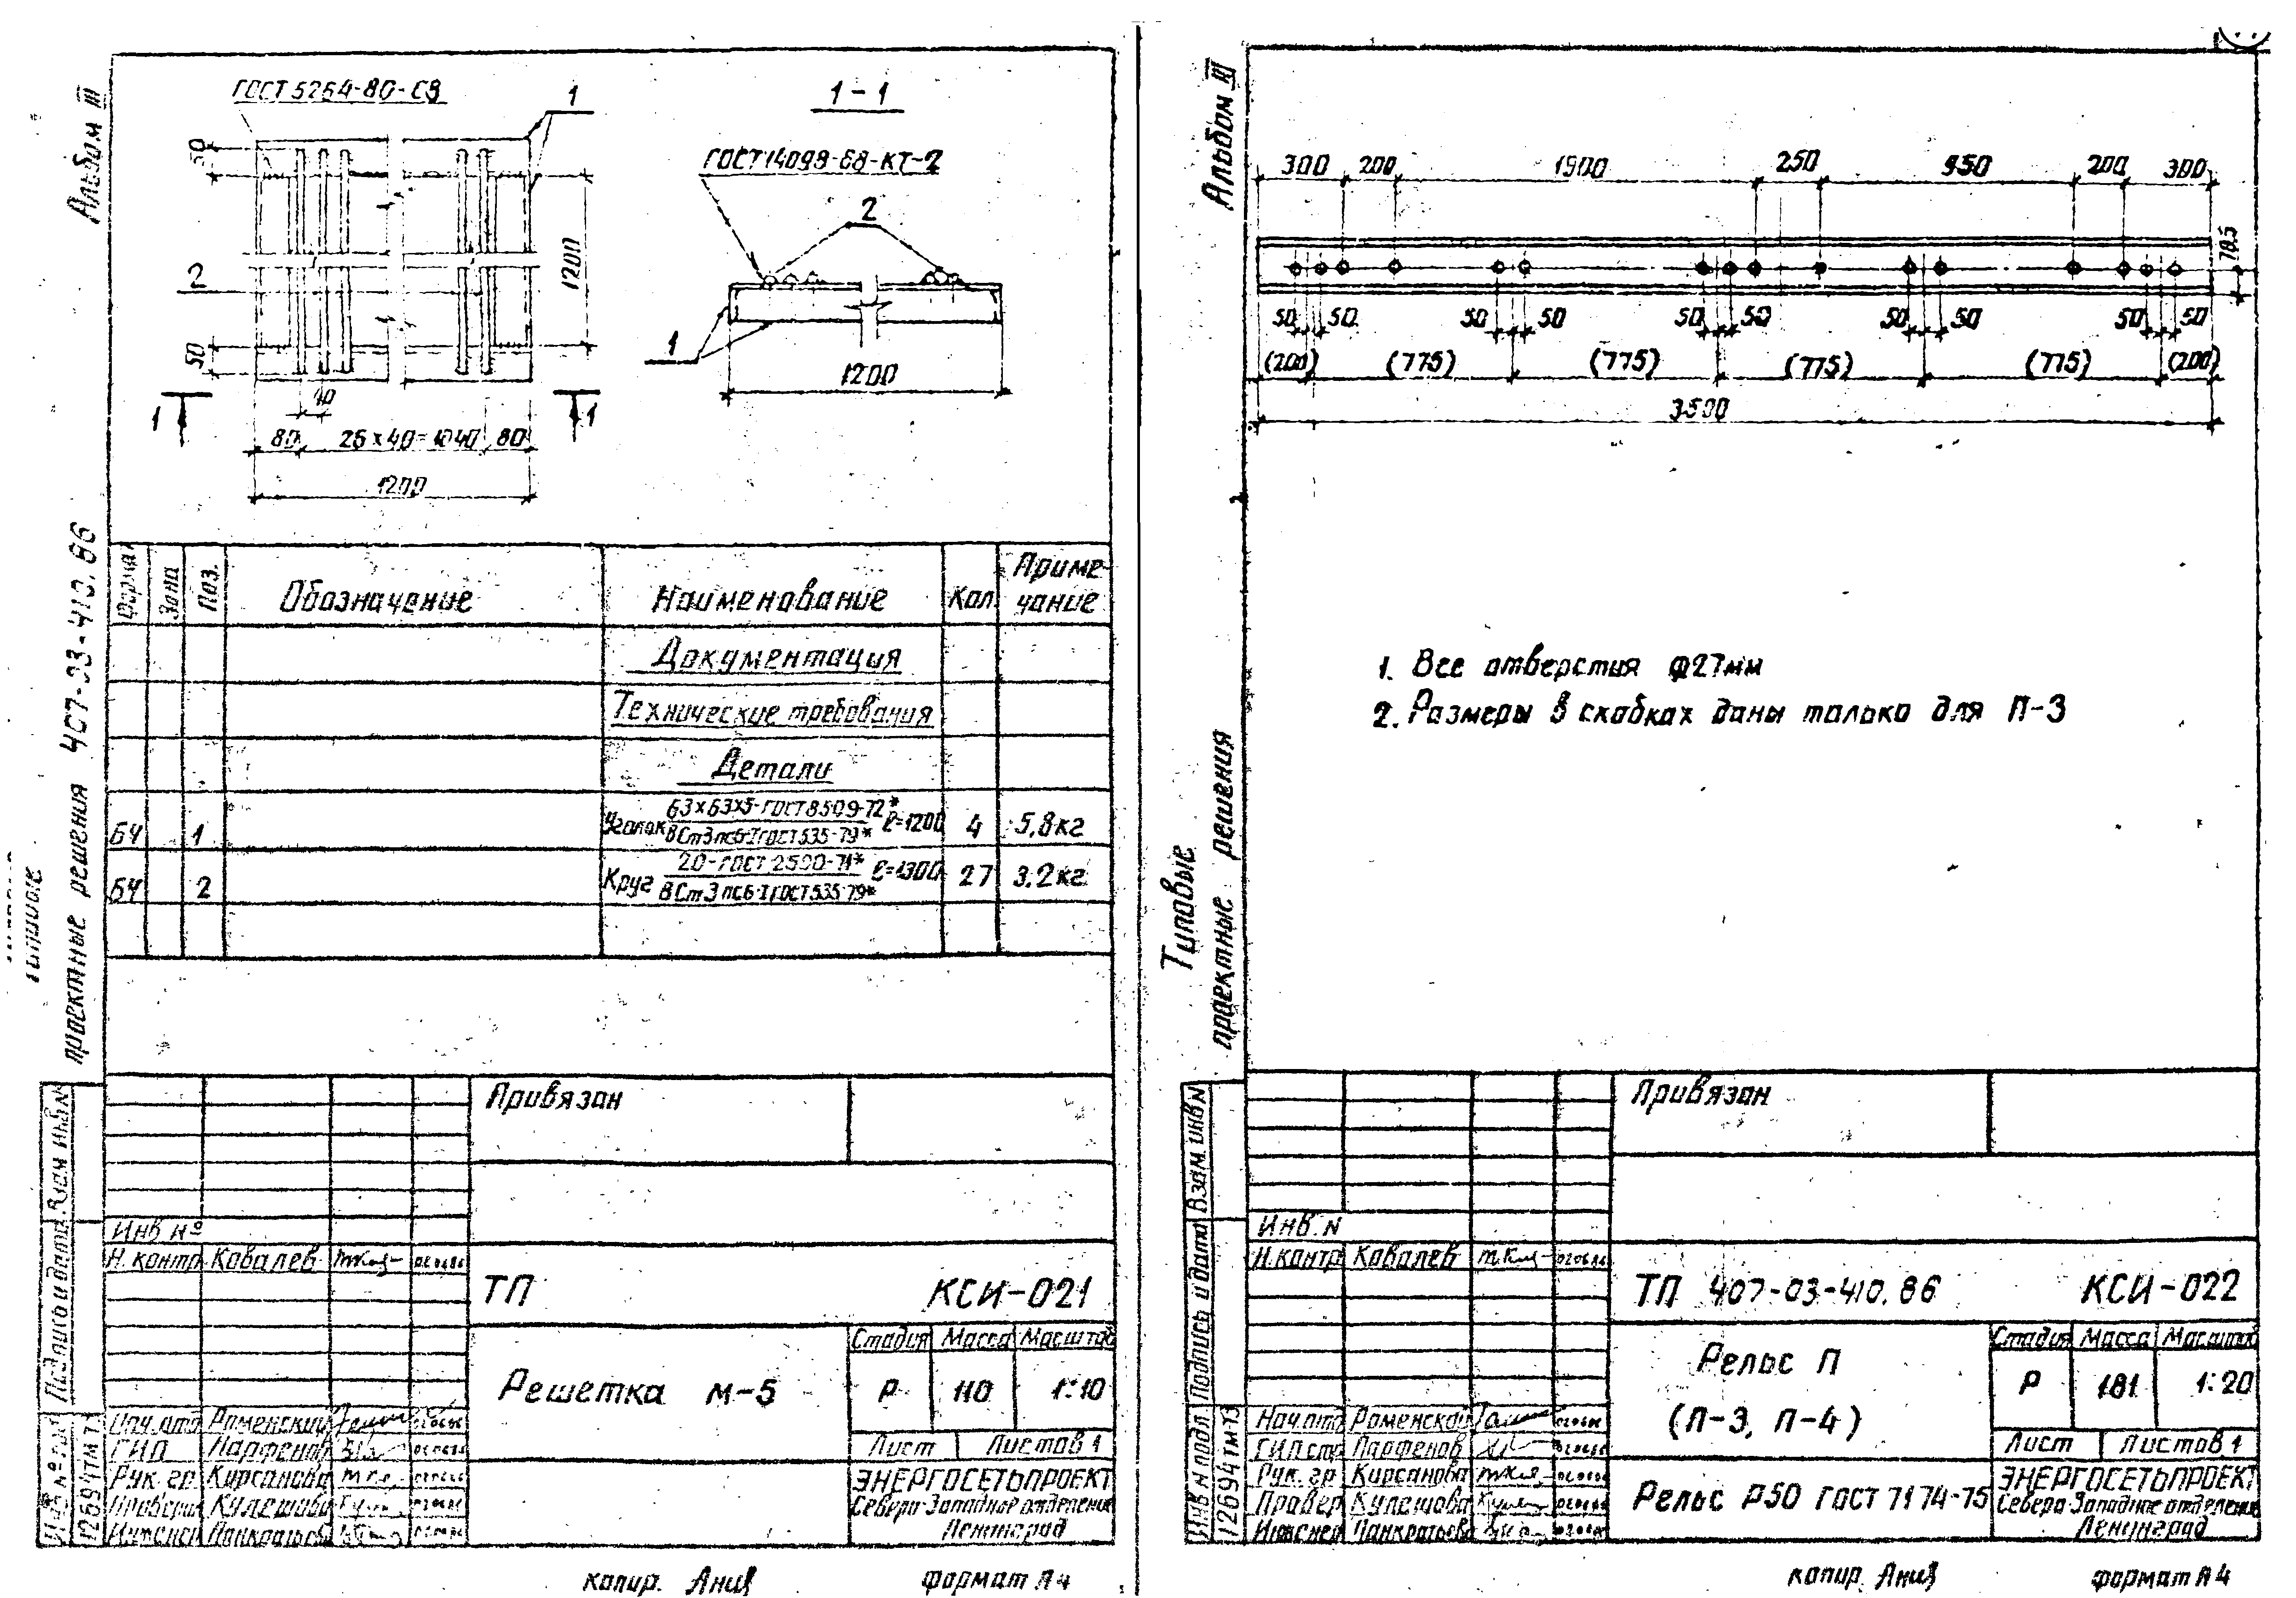 Альбом III
ГОСТ 5264-80-С8
1
1-1
50
ГОСТ 14098-68-КТ-2
2
1200
2
50
1
1200
1
1
40
80
26×40=1040
80
1200
проектные решения 407-03-410.86
Формат
Зона
Поз.
Обозначение
Наименование
Кол
Приме-
чание
Документация
Технические требования
Детали
БЧ 1 Уголок 63×63×5-ГОСТ 8509-72* ВСт3пс6-I ГОСТ 535-79* ℓ=1200 4 5,8кг
БЧ 2 Круг 20-ГОСТ 2590-71* ВСт3пс6-I ГОСТ 535-79* ℓ=1300 27 3.2кг
Привязан
Инв №
Н. контр. Ковалев
ТП КСИ-021
Решетка м-5
Стадия Масса Масштаб
Р 110 1:10
Лист Листов 1
Нач.отд Раменский
ГИП Парфенов
Рук. гр. Кирсанова
Кулешова
Панкратьева
ЭНЕРГОСЕТЬПРОЕКТ
Северо-Западное отделение
Ленинград
Взам инв N
Подпись и дата
12694тм-т3
копир. формат А4
Альбом III
300 200 1900 250 950 200 300
70.5
50 50 50 50 50 50 50 50 50 50
(200) (775) (775) (775) (775) (200)
3500
1. Все отверстия ф27мм
2. Размеры в скобках даны только для П-3
Типовые
проектные решения
Привязан
Инв. N
Н.контр Ковалев
ТП 407-03-410.86 КСИ-022
Рельс П
(П-3, П-4)
Стадия Масса Масштаб
Р 181 1:20
Лист Листов 1
Нач.отд Раменской
ГИП стр Парфенов
Рук. гр Кирсанова
Провер Кулешова
Инженер Панкратьева
Рельс Р50 ГОСТ 7174-75
ЭНЕРГОСЕТЬПРОЕКТ
Северо-Западное отделение
Ленинград
Взам. инв N
Подпись и дата
Инв N подл
12694тм-т3
копир. формат А4